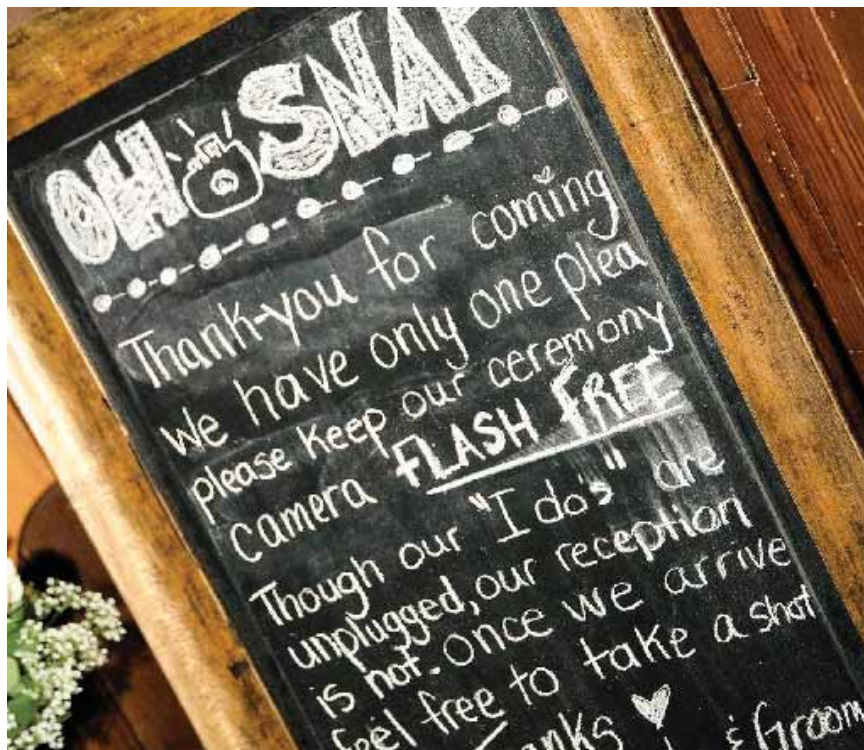 OH SNAP
Thank-you for coming
we have only one plea
please keep our ceremony
camera FLASH FREE
Though our "I do's" are
unplugged, our reception
is not. Once we arrive
feel free to take a shot
& Groom